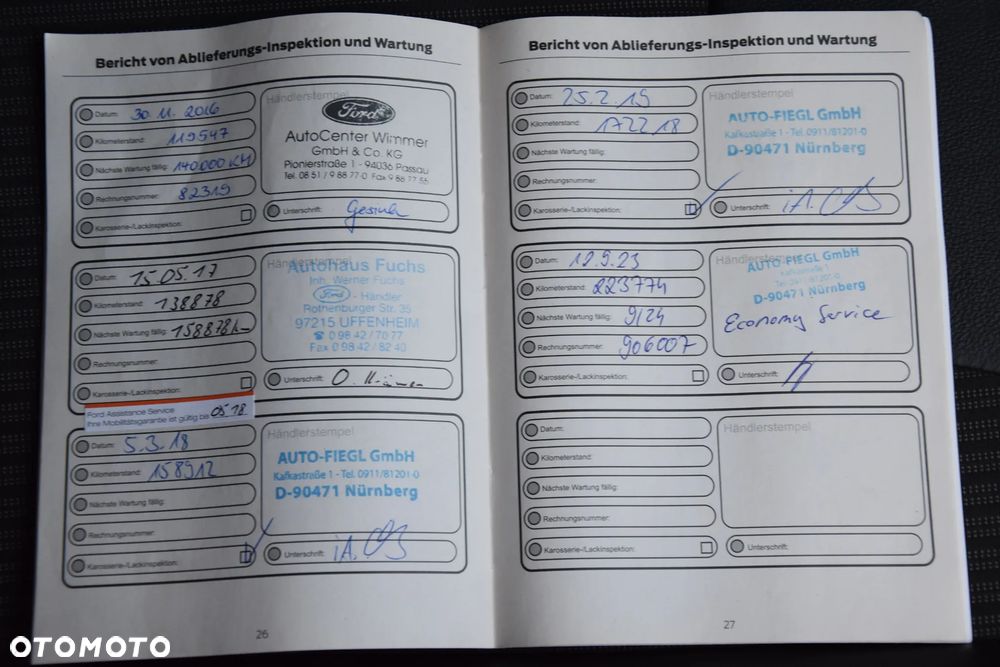 Bericht von Ablieferungs-Inspektion und Wartung
Datum: 30.11.2016
Kilometerstand: 119547
Nächste Wartung fällig: 140.000 KM
Rechnungsnummer: 82319
Karosserie-/Lackinspektion:
Händlerstempel
Ford
AutoCenter Wimmer
GmbH & Co. KG
Pionierstraße 1 - 94036 Passau
Tel. 08 51 / 9 88 77-0 Fax 9 88 77 55
Unterschrift:
Datum: 15.05.17
Kilometerstand: 138878
Nächste Wartung fällig: 158878 km
Rechnungsnummer:
Karosserie-/Lackinspektion:
Händlerstempel
Autohaus Fuchs
Inh. Werner Fuchs
Ford - Händler
Rothenburger Str. 35
97215 UFFENHEIM
☎ 0 98 42 / 70 77
Fax 0 98 42 / 82 40
Unterschrift:
Ford Assistance Service
Ihre Mobilitätsgarantie ist gültig bis 05.18
Datum: 5.3.18
Kilometerstand: 158912
Nächste Wartung fällig:
Rechnungsnummer:
Karosserie-/Lackinspektion:
Händlerstempel
AUTO-FIEGL GmbH
Kafkastraße 1 - Tel. 0911/81201-0
D-90471 Nürnberg
Unterschrift: iA.
26
Bericht von Ablieferungs-Inspektion und Wartung
Datum: 25.2.19
Kilometerstand: 172218
Nächste Wartung fällig:
Rechnungsnummer:
Karosserie-/Lackinspektion:
Händlerstempel
AUTO-FIEGL GmbH
Kafkastraße 1 - Tel. 0911/81201-0
D-90471 Nürnberg
Unterschrift: iA.
Datum: 19.9.23
Kilometerstand: 223774
Nächste Wartung fällig: 9/24
Rechnungsnummer: 906007
Karosserie-/Lackinspektion:
Händlerstempel
AUTO-FIEGL GmbH
Kafkastraße 1
Tel. 0911/81201-0
D-90471 Nürnberg
Economy Service
Unterschrift:
Datum:
Kilometerstand:
Nächste Wartung fällig:
Rechnungsnummer:
Karosserie-/Lackinspektion:
Händlerstempel
Unterschrift:
27
OTOMOTO